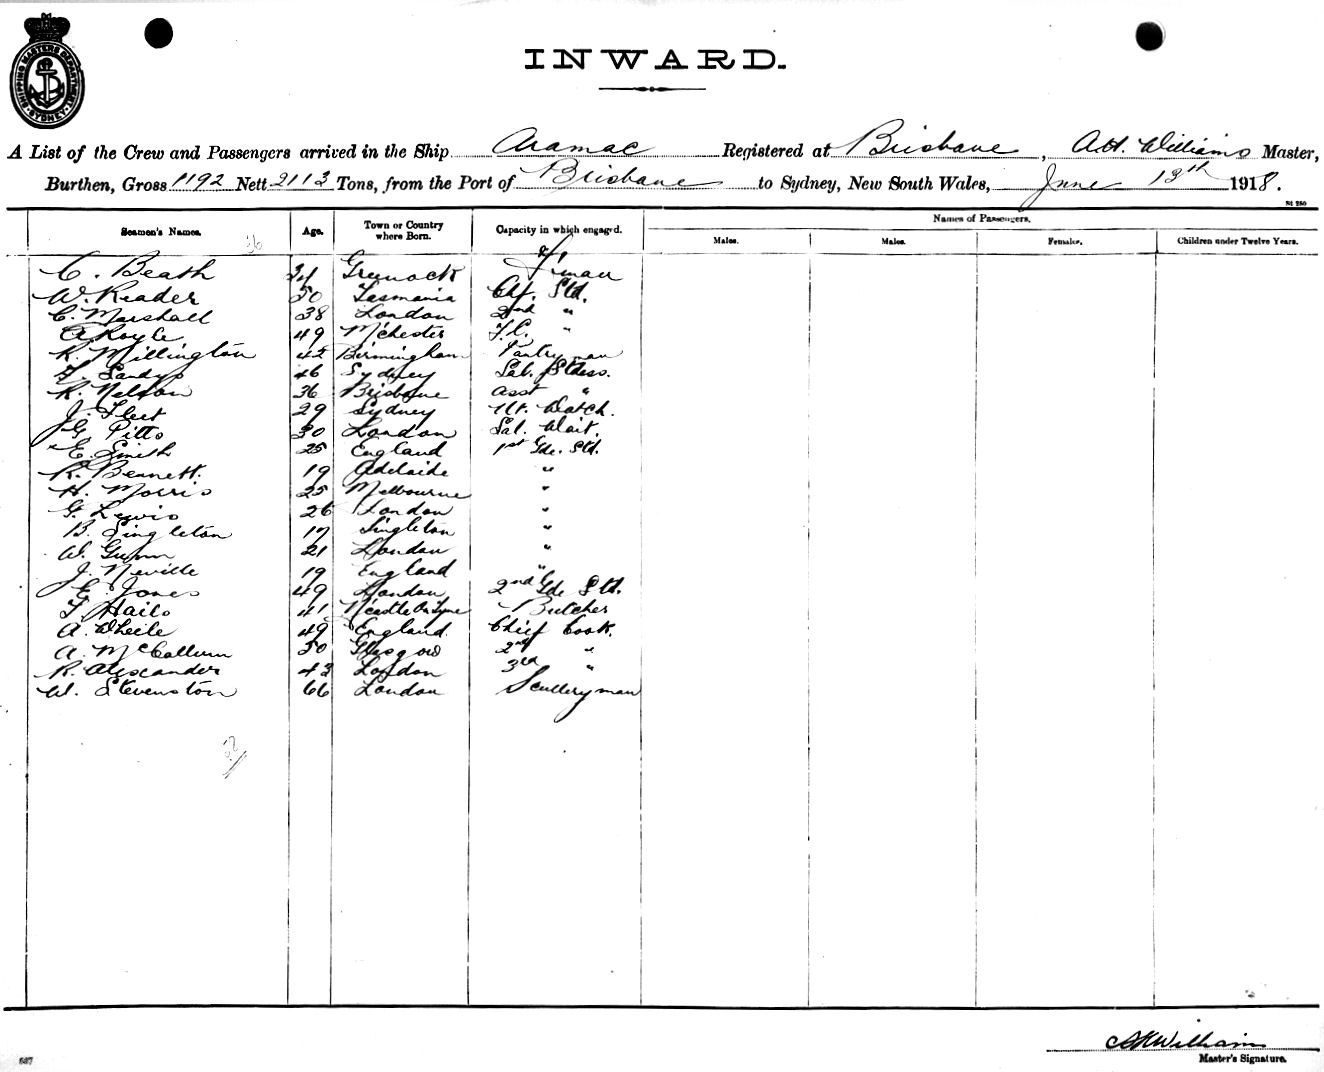 SHIPPING MASTERS DEPARTMENT SYDNEY
INWARD.
A List of the Crew and Passengers arrived in the Ship Aramac Registered at Brisbane, A.H. Williams Master,
Burthen, Gross 1192 Nett 2113 Tons, from the Port of Brisbane to Sydney, New South Wales, June 13th 1918.
St 280
Seamen's Names. Age. Town or Country where Born. Capacity in which engaged. Names of Passengers.
Males. Males. Females. Children under Twelve Years.
C. Beath 24 Greenock F/man
W. Reader 50 Tasmania Chf. Std.
C. Marshall 38 London 2nd "
A Royle 49 M'chester F.C. "
R. Millington 42 Birmingham Pantryman
F. Sandys 46 Sydney Sal. Stdess.
R. Nelson 36 Brisbane Asst "
J. Fleet 29 Sydney Nt. Watch.
J.G. Pitts 30 London Sal. Wait.
E. Smith 25 England 1st Gde. Std.
R. Bennett. 19 Adelaide "
H. Morris 25 Melbourne "
G. Lewis 26 London "
B. Singleton 17 Singleton "
W. Gunn 21 London "
J. Neville 19 England "
E. Jones 49 London 2nd Gde Std.
F. Hails 41 N'castle On Tyne Butcher
A. 49 England. Chief Cook.
A. McCallum 50 Glasgow 2nd "
R. Alexander 43 London 3rd "
W. Stevenston 66 London Sculleryman
AHWilliams
Master's Signature.